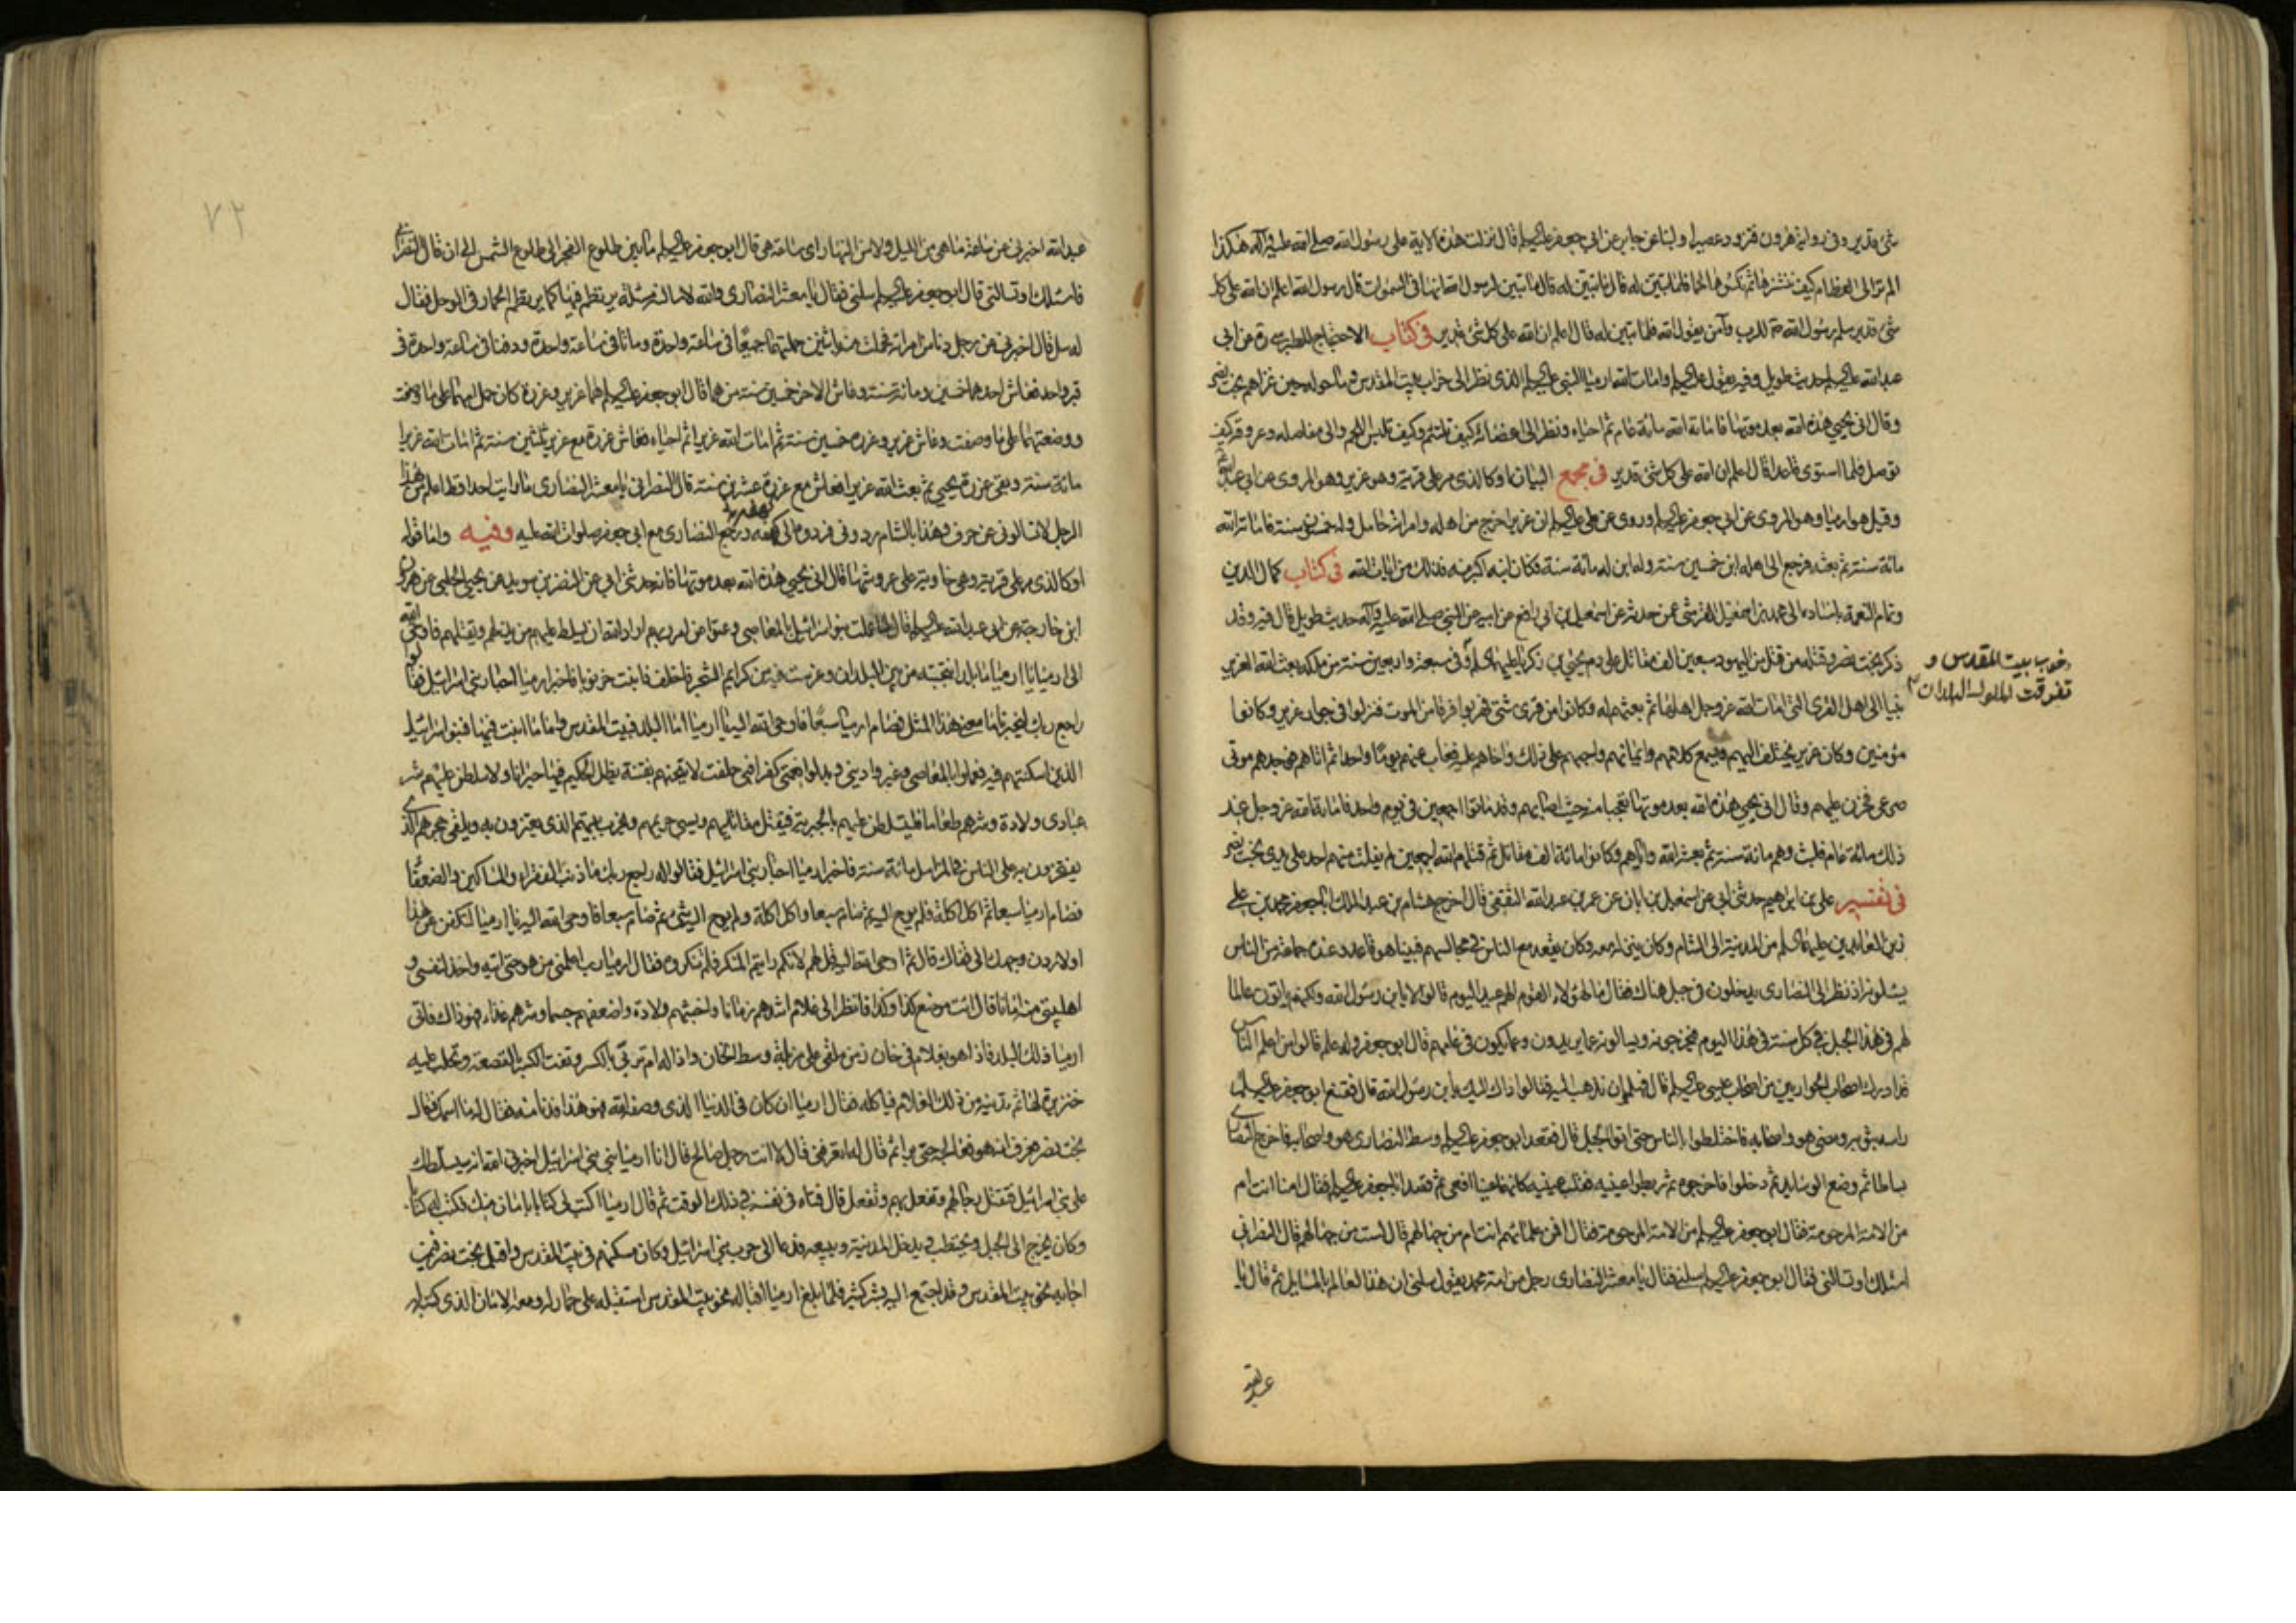 شئ قدير وفى رواية هرون فتزود عصيرا ولبنا عن جابر عن ابي جعفر عليه السلم قال نزلت هذه الاية على رسول الله صلى الله عليه وآله هكذا
الم تر الى العظام كيف ننشزها ثم نكسوها لحما فلما تبين له قال ما تبين له قال ما تبين لرسول الله انها فى السموات قال رسول الله اعلم ان الله على كل
شئ قدير سلم رسول الله للرب وآمن بقول الله فلما تبين له قال اعلم ان الله على كل شئ قدير فى كتاب الاحتجاج للطبرسى ره عن ابى
عبد الله عليه السلم حديث طويل وفيه يقول عليه السلم وامات الله ارميا النبى عليه السلم الذى نظر الى خراب بيت المقدس وما حوله حين غزاهم بخت نصر
وقال انى يحيى هذه الله بعد موتها فاماته الله مائة عام ثم احياه ونظر الى اعضائه كيف تلتئم وكيف تلبس اللحم والى مفاصله وعروقه كيف
توصل فلما استوى قاعدا قال اعلم ان الله على كل شئ قدير فى مجمع البيان او كالذى مر على قرية وهو عزير وهو المروى عن ابى عبد الله
وقيل هو ارميا وهو المروى عن ابى جعفر عليه السلم وروى عن على عليه السلم ان عزيرا خرج من اهله وامراته حامل وله خمسون سنة فاماته الله
مائة سنة ثم بعثه فرجع الى اهله ابن خمسين سنة وله ابن له مائة سنة فكان ابنه اكبر منه فذلك من ايات الله فى كتاب كمال الدين
وتمام النعمة باسناده الى محمد بن اسمعيل القرشى عمن حدثه عن اسمعيل بن ابى رافع عن ابيه عن النبى صلى الله عليه وآله حديث طويل قال فيه وقد
ذكر بخت نصر وقتله من قتل من اليهود سبعين الف مقاتل على دم يحيى بن زكريا عليهما السلم وفى سبعة واربعين سنة من ملكه بعث الله العزير
وخرب بيت المقدس و
تفرقت اليهود فى البلدان
نبيا الى اهل القرى التى امات الله عز وجل اهلها ثم بعثهم له وكانوا من قرى شتى فهربوا فرقا من الموت فنزلوا فى جوار عزير وكانوا
مؤمنين وكان عزير يختلف اليهم ويسمع كلامهم وايمانهم واحبهم على ذلك واخاهم عليه فغاب عنهم يوما واحدا ثم اتاهم فوجدهم موتى
صرعى فحزن عليهم وقال انى يحيى هذه الله بعد موتها تعجبا منه حيث اصابهم وقد ماتوا اجمعين فى يوم واحد فاماته الله عز وجل عند
ذلك مائة عام فلبث وهم مائة سنة ثم بعثه الله واياهم وكانوا مائة الف مقاتل ثم قتلهم الله اجمعين لم يفلت منهم احد على يدى بخت نصر
فى تفسير على بن ابراهيم حدثنى ابى عن اسمعيل بن ابان عن عمر بن عبد الله الثقفى قال اخرج هشام بن عبد الملك ابا جعفر محمد بن على
زين العابدين عليهما السلم من المدينة الى الشام وكان ينزله معه وكان يقعد مع الناس فى مجالسهم فبينا هو قاعد وعنده جماعة من الناس
يسئلونه اذ نظر الى النصارى يدخلون فى جبل هناك فقال ما لهؤلاء القوم الهم عيد اليوم قالوا لا يابن رسول الله ولكنهم ياتون عالما
لهم فى هذا الجبل فى كل سنة فى هذا اليوم فيخرجونه ويسالونه عما يريدون وعما يكون فى عامهم قال ابو جعفر وله علم قالوا من اعلم الناس
قد ادرك اصحاب الحواريين من اصحاب عيسى عليه السلم قال فهلم ان نذهب اليه فقالوا ذاك اليك يابن رسول الله قال فقنع ابو جعفر عليه السلم
راسه بثوبه ومضى هو واصحابه فاختلطوا بالناس حتى اتوا الجبل قال فقعد ابو جعفر عليه السلم وسط النصارى هو واصحابه فاخرج النصارى
بساطا ثم وضع الوسايد ثم دخلوا فاخرجوه ثم ربطوا عينيه فقلب عينيه كانهما عينا افعى ثم قصد ابا جعفر عليه السلم فقال امنا انت ام
من الامة المرحومة فقال ابو جعفر عليه السلم من الامة المرحومة فقال افمن علمائهم انت ام من جهالهم قال لست من جهالهم قال النصرانى
اسئلك او تسالنى فقال ابو جعفر عليه السلم سلنى فقال يا معشر النصارى رجل من امة محمد يقول سلنى ان هذا لعالم بالمسايل ثم قال يا
عبد الله
٧٢
عبد الله اخبرنى عن ساعة ما هى من الليل ولا من النهار اى ساعة هى قال ابو جعفر عليه السلم ما بين طلوع الفجر الى طلوع الشمس الى ان قال النصرانى
فاسئلك او تسالنى قال ابو جعفر عليه السلم سلنى فقال يا معشر النصارى والله لاسالنه مسئلة يرتطم فيها كما يرتطم الحمار فى الوحل فقال
له سل قال اخبرنى عن رجل دنا من امراته فحملت منه اثنين حملتهما جميعا فى ساعة واحدة وماتا فى ساعة واحدة ودفنا فى ساعة واحدة فى
قبر واحد فعاش احدهما خمسين ومائة سنة وعاش الاخر خمسين سنة من هما قال ابو جعفر عليه السلم هما عزير وعزرة كان حمل امهما على ما وصفت
ووضعتهما على ما وصفت وعاش عزير وعزرة خمسين سنة ثم امات الله عزيرا ثم احياه فعاش عزرة مع عزير ثلثين سنة ثم امات الله عزيرا
مائة سنة وبقى عزرة يحيى ثم بعث الله عزيرا فعاش مع عزرة عشرين سنة قال النصرانى يا معشر النصارى ما رايت احدا قط اعلم من هذا
الرجل لا تسالونى عن حرف وهذا بالشام ردونى فردوه الى كهفه ورجع النصارى مع ابى جعفر صلوات الله عليه وفيه واما قوله
او كالذى مر على قرية وهى خاوية على عروشها قال انى يحيى هذه الله بعد موتها فانه حدثنى ابى عن النضر بن سويد عن يحيى الحلبى عن هرون
ابن خارجة عن ابى عبد الله عليه السلم قال لما عملت بنو اسرائيل بالمعاصى وعتوا عن امر ربهم اراد الله ان يسلط عليهم من يذلهم ويقتلهم فاوحى الله
الى ارميا يا ارميا ما بلد انتخبته من بين البلدان وغرست فيه من كرائم الشجر فاخلف فانبت خرنوبا فاخبر ارميا احبار بنى اسرائيل فقالوا له
راجع ربك ليخبرنا ما معنى هذا المثل فصام ارميا سبعا فاوحى الله اليه يا ارميا اما البلد فبيت المقدس واما ما انبت فيها فبنو اسرائيل
الذين اسكنتهم فيه فعملوا بالمعاصى وغيروا دينى وبدلوا نعمتى كفرا فبى حلفت لامتحننهم بفتنة يظل الحكيم فيها حيرانا ولاسلطن عليهم شر
عبادى ولادة وشرهم طعاما فليتسلطن عليهم بالجبرية فيقتل مقاتليهم ويسبى حريمهم ويخرب بيتهم الذى يغترون به ويلقى حجرهم الذى
يفتخرون به على الناس فى المزابل مائة سنة فاخبر ارميا احبار بنى اسرائيل فقالوا له راجع ربك ما ذنب الفقراء والمساكين والضعفا
فصام ارميا سبعا ثم اكل اكلة فلم يوح اليه ثم صام سبعا واكل اكلة ولم يوح اليه شئ ثم صام سبعا فاوحى الله اليه يا ارميا لتكفن عن هذا
او لاردن وجهك الى قفاك قال ثم اوحى الله اليه قل لهم لانكم رايتم المنكر فلم تنكروه فقال ارميا رب اعلمنى من هو حتى اتيه واخذ لنفسى و
اهل بيتى منه امانا قال ائت موضع كذا وكذا فانظر الى غلام اشدهم زمانا واخبثهم ولادة واضعفهم جسما وشرهم غذاء فهو ذاك فاتى
ارميا ذلك البلد فاذا هو بغلام فى خان زمن ملقى على مزبلة وسط الخان واذا له ام تربى بالكسر وتفت الكسر بالقصعة وتحلب عليه
خنزيرة لها ثم تدنيه من ذلك الغلام فياكله فقال ارميا ان كان فى الدنيا الذى وصفه الله فهو هذا فدنا منه فقال له ما اسمك فقال
بخت نصر فعرف انه هو فعالجه حتى برا ثم قال له تعرفنى قال لا انت رجل صالح قال انا ارميا نبى بنى اسرائيل اخبرنى الله انه سيسلطك
على بنى اسرائيل فتقتل رجالهم وتفعل بهم وتفعل قال فتاه فى نفسه فى ذلك الوقت ثم قال ارميا اكتب لى كتابا بامان منك فكتب له كتابا
وكان يخرج الى الجبل ويحتطب ويدخل المدينة ويبيعه فدعا الى حرب بنى اسرائيل وكان مسكنهم فى بيت المقدس واقبل بخت نصر فيمن
اجابه نحو بيت المقدس وقد اجتمع اليه بشر كثير فلما بلغ ارميا اقباله نحو بيت المقدس استقبله على حمار له ومعه الامان الذى كتبه له